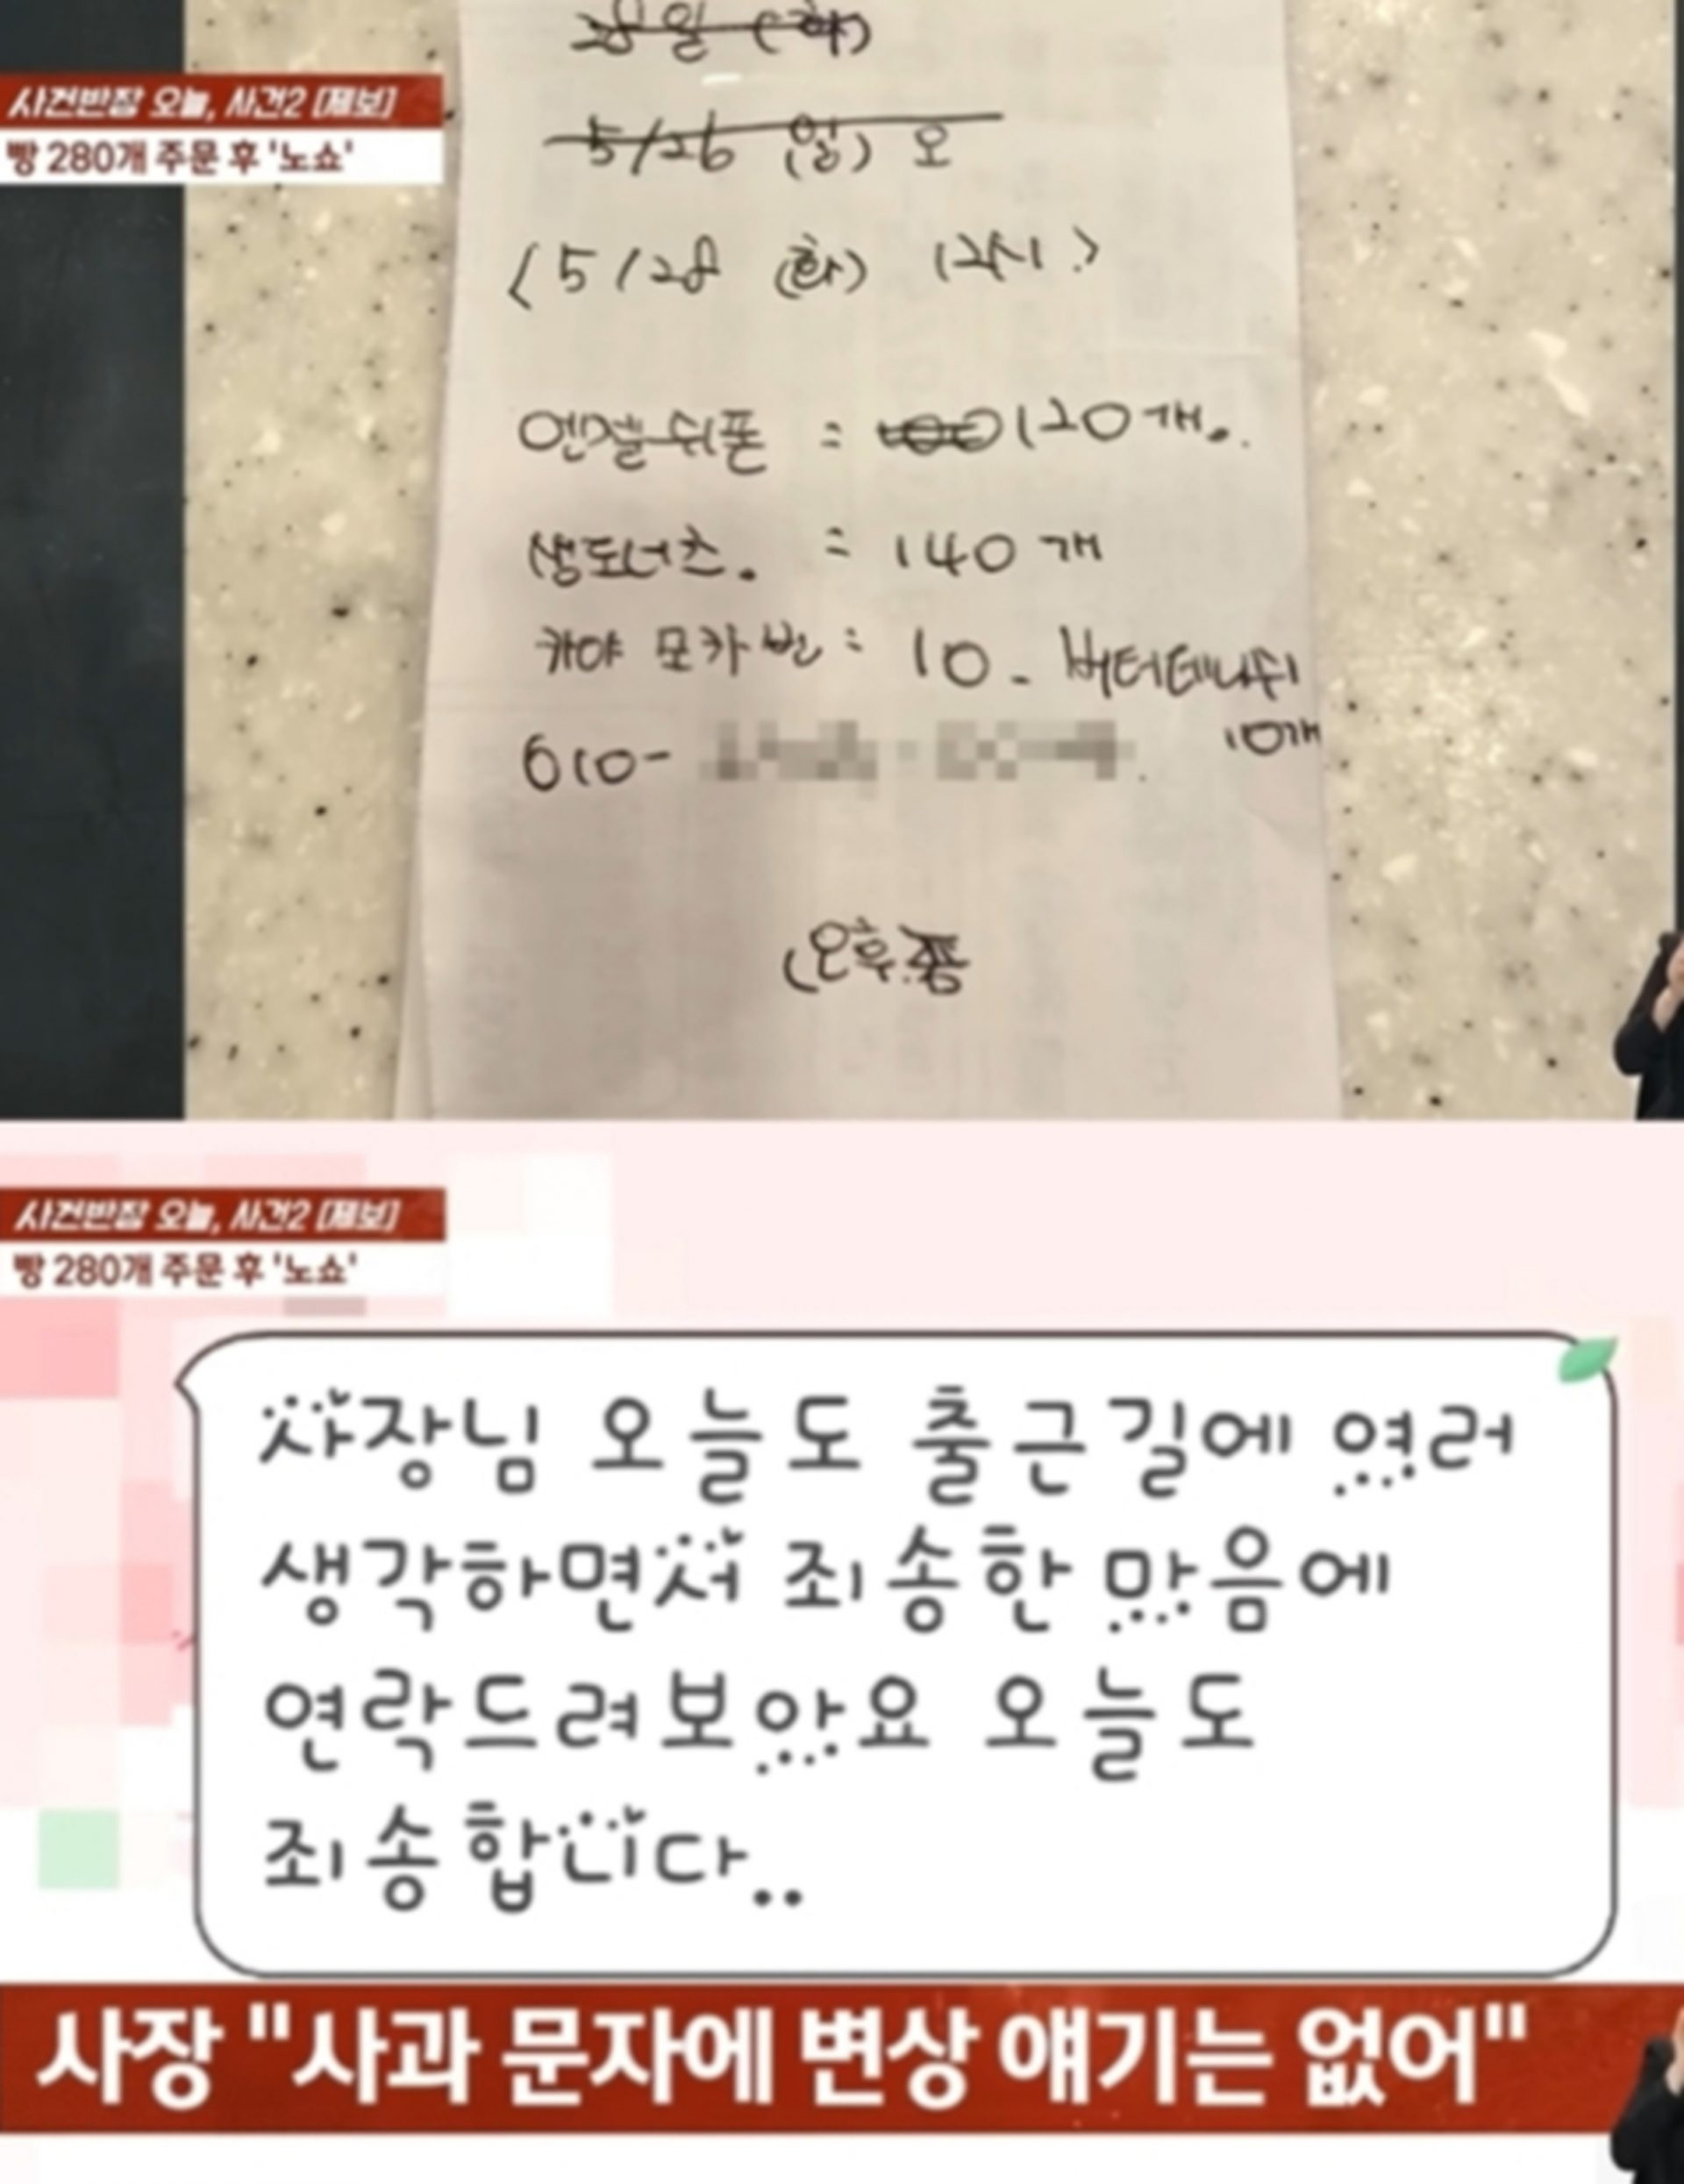 28일 (화)
사건반장 오늘, 사건2 [제보]
빵 280개 주문 후 '노쇼'
5/26 (일) 오
<5/28 (화) 12시.>
엔젤쉬폰 : 100 120개.
생도너츠. = 140개
카야 모카번 : 10 - 버터데니쉬
10개
010-
(오후쯤
사건반장 오늘, 사건2 [제보]
빵 280개 주문 후 '노쇼'
사장님 오늘도 출근길에 여러
생각하면서 죄송한 마음에
연락드려보아요 오늘도
죄송합니다..
사장 "사과 문자에 변상 얘기는 없어"